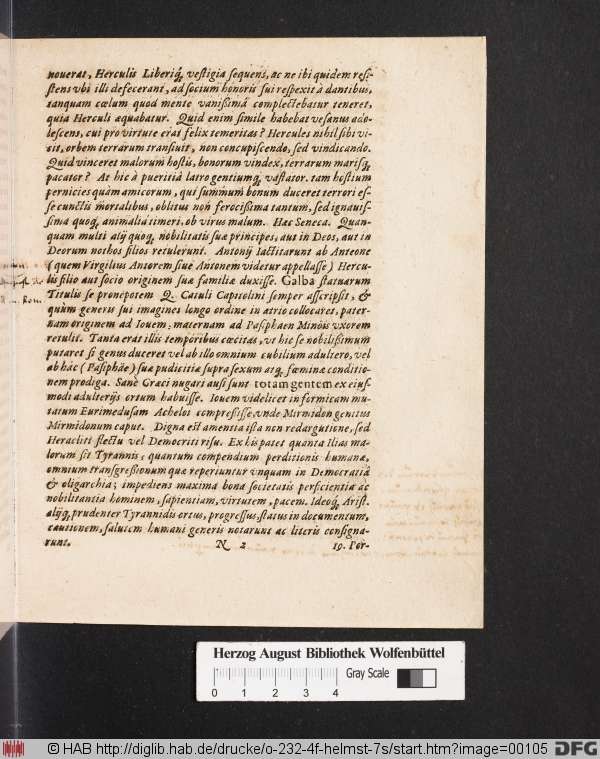 nouerat, Herculis Liberiq́; vestigia sequens, ac ne ibi quidem resi-
stens vbi illi defecerant, ad socium honoris sui respexit à dantibus,
tanquam cœlum quod mente vanißimâ complectebatur teneret,
quia Herculi æquabatur. Quid enim simile habebat vesanus ado-
lescens, cui pro virtute erat felix temeritas? Hercules nihil sibi vi-
cit, orbem terrarum transiuit, non concupiscendo, sed vindicando.
Quid vinceret malorum hostis, bonorum vindex, terrarum marisq́;
pacator? At hic à pueritiâ latro gentiumq́; vastator. tam hostium
pernicies quàm amicorum, qui summum bonum duceret terrori es-
se cunctis mortalibus, oblitus non ferocißima tantum, sed ignauis-
sima quoq́; animalia timeri, ob virus malum. Hac Seneca. Quan-
quam multi alij quoq́; nobilitatis suæ principes, aut in Deos, aut in
Deorum nothos filios retulerunt. Antonij iactitarunt ab Anteone
(quem Virgilius Antorem siue Antonem videtur appellasse) Hercu-
lis filio aut socio originem suæ familiæ duxisse. Galba statuarum
Titulis se pronepotem Q. Catuli Capitolini semper asscripsit, &
quùm generis sui imagines longo ordine in atrio collocaret, pater-
nam originem ad Iouem, maternam ad Pasiphaen Minois vxorem
retulit. Tanta erat illis temporibus cœcitas, vt hic se nobilißimum
putaret si genus duceret vel ab illo omnium cubilium adultero, vel
ab hâc (Pasiphäe) suæ pudicitiæ supra sexum atq́; fœminæ conditio-
nem prodiga. Sanè Græci nugari ausi sunt totam gentem ex eius-
modi adulterijs ortum habuisse. Iouem videlicet in formicam mu-
tatum Eurimedusam Acheloi compreßisse, vnde Mirmidon genitus
Mirmidonum caput. Digna est amentia ista non redargutione, sed
Heracliti fletu vel Democriti risu. Ex his patet quanta ilias ma-
lorum sit Tyrannis, quantum compendium perditionis humanæ,
omnium transgreßionum quæ reperiuntur vnquam in Democratiâ
& oligarchia; impediens maxima bona societatis perficientia ac
nobilitantia hominem, sapientiam, virtutem, pacem. Ideoq́; Arist.
alijq́; prudenter Tyrannidis ortus, progressus, status in documentum,
cautionem, salutem humani generis notarunt ac literis consigna-
runt.
N 2
19. Por-
Herzog August Bibliothek Wolfenbüttel
Gray Scale
0 1 2 3 4
© HAB http://diglib.hab.de/drucke/o-232-4f-helmst-7s/start.htm?image=00105 DFG